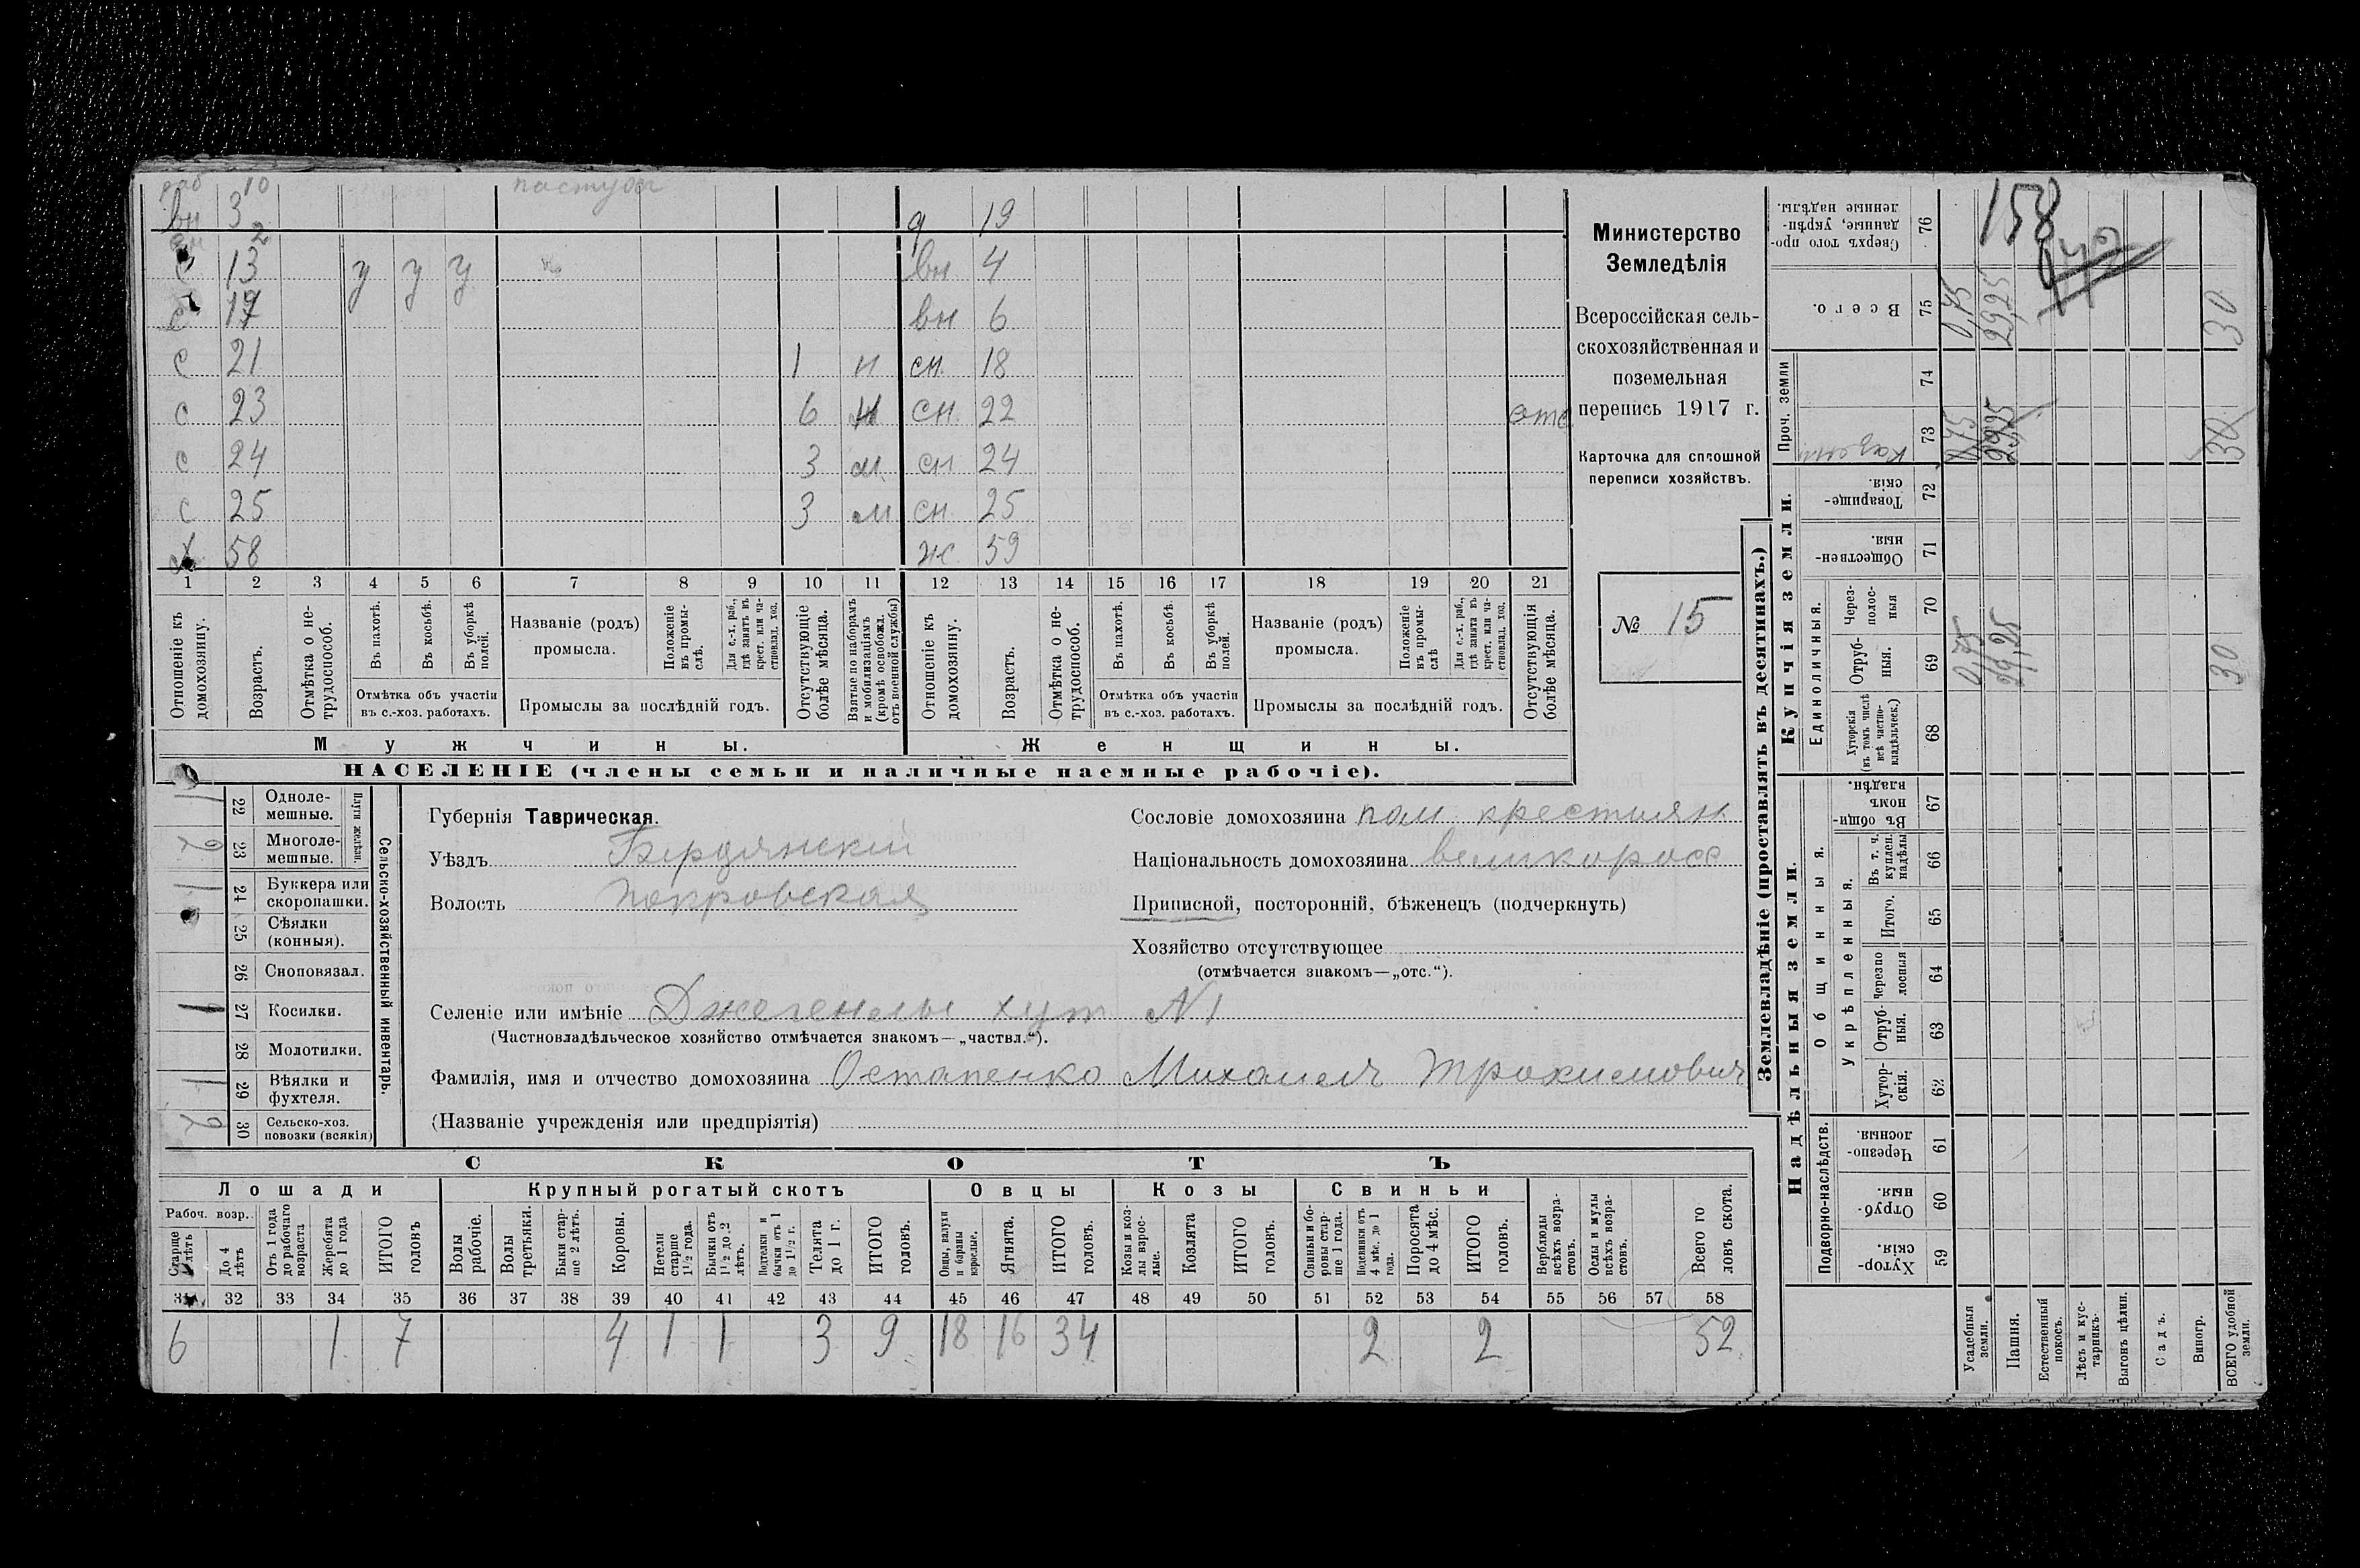 раб 10 пастухи
вн 3 д 19
2
с 13 у у у вн 4
с 17 вн 6
с 21 1 н сн 18
с 23 6 сн. 22 отс
с 24 3 м сн 24
с 25 3 м сн 25
х 58 ж 59
1 2 3 4 5 6 7 8 9 10 11 12 13 14 15 16 17 18 19 20 21
Отношеніе къ домохозяину.
Возрастъ.
Отмѣтка о нетрудоспособ.
Въ пахотѣ.
Въ косьбѣ.
Въ уборкѣ полей.
Отмѣтка объ участіи въ с.-хоз. работахъ.
Названіе (родъ) промысла.
Положеніе въ промыслѣ.
Для с.-х. раб., гдѣ занятъ въ крест. или частновлад. хоз.
Промыслы за послѣдній годъ.
Отсутствующіе болѣе мѣсяца.
Взятые по наборамъ и мобилизаціямъ (кромѣ освобожд. отъ военной службы)
Отношеніе къ домохозяину.
Возрастъ.
Отмѣтка о нетрудоспособ.
Въ пахотѣ.
Въ косьбѣ.
Въ уборкѣ полей.
Отмѣтка объ участіи въ с.-хоз. работахъ.
Названіе (родъ) промысла.
Положеніе въ промыслѣ
Для с.-х. раб., гдѣ занята въ крест. или частновлад. хоз.
Промыслы за послѣдній годъ.
Отсутствующія болѣе мѣсяца.
Мужчины. Женщины.
НАСЕЛЕНІЕ (члены семьи и наличные наемные рабочіе).
Министерство
Земледѣлія
Всероссійская сель-
скохозяйственная и
поземельная
перепись 1917 г.
Карточка для сплошной
переписи хозяйствъ.
№ 15
Сельско-хозяйственный инвентарь.
Плуги желѣзн.
1 22 Одноле-
мешные.
2 23 Многоле-
мешные.
1 24 Буккера или
скоропашки.
25 Сѣялки
(конныя).
26 Сноповязал.
1 27 Косилки.
28 Молотилки.
1 29 Вѣялки и
фухтеля.
2 30 Сельско-хоз.
повозки (всякія)
Губернія Таврическая.
Уѣздъ Бердянскій
Волость Покровская
Сословіе домохозяина крестьян
Національность домохозяина великоросс
Приписной, посторонній, бѣженецъ (подчеркнуть)
Хозяйство отсутствующее
(отмѣчается знакомъ—„отс.“).
Селеніе или имѣніе хут N 1
(Частновладѣльческое хозяйство отмѣчается знакомъ—„частвл.“).
Фамилія, имя и отчество домохозяина Остапенко Михаилъ Трохимович
(Названіе учрежденія или предпріятія)
СКОТЪ
Лошади Крупный рогатый скотъ Овцы Козы Свиньи
Рабоч. возр.
Старше 4 лѣтъ
До 4 лѣтъ
Отъ 1 года до рабочаго возраста
Жеребята до 1 года
ИТОГО головъ
Волы рабочіе.
Волы третьяки.
Быки старше 2 лѣтъ.
Коровы.
Нетели старше 1½ года.
Бычки отъ 1½ до 2 лѣтъ.
Подтелки и бычки отъ 1 до 1½ г.
Телята до 1 г.
ИТОГО головъ.
Овцы, валухи и бараны взрослые.
Ягнята.
ИТОГО головъ.
Козы и козлы взрослые.
Козлята
ИТОГО головъ.
Свиньи и боровы старше 1 года.
Подсвинки отъ 4 мѣс. до 1 года.
Поросята до 4 мѣс.
ИТОГО головъ.
Верблюды всѣхъ возрастовъ.
Ослы и мулы всѣхъ возрастовъ.
Всего головъ скота.
31 32 33 34 35 36 37 38 39 40 41 42 43 44 45 46 47 48 49 50 51 52 53 54 55 56 57 58
6 1 7 4 1 1 3 9 18 16 34 2 2 52
Землевладѣніе (проставлять въ десятинахъ.)
Купчія земли.
Надѣльныя земли.
Сверхъ того проданные, укрѣпленные надѣлы. 76
158
Всего. 75 0,75 29,25 30
Проч. земли
74
73 0,75 29,25 30
Товарищескія. 72
Общественныя. 71
Единоличныя.
Черезполосныя 70
Отрубныя. 69 0,75 29,25 30
Хуторскія (въ томъ числѣ всѣ частновладѣльческ.) 68
Общинныя.
Въ общинномъ владѣн. 67
Укрѣпленныя.
Въ т. ч. куплен. надѣлы 66
Итого. 65
Черезполосныя 64
Отрубныя. 63
Хуторскія. 62
Подворно-наслѣдств.
Черезполосныя. 61
Отрубныя. 60
Хуторскія. 59
Усадебныя земли.
Пашня.
Естественный покосъ.
Лѣсъ и кустарникъ.
Выгонъ цѣлин.
Садъ.
Виногр.
ВСЕГО удобной земли.